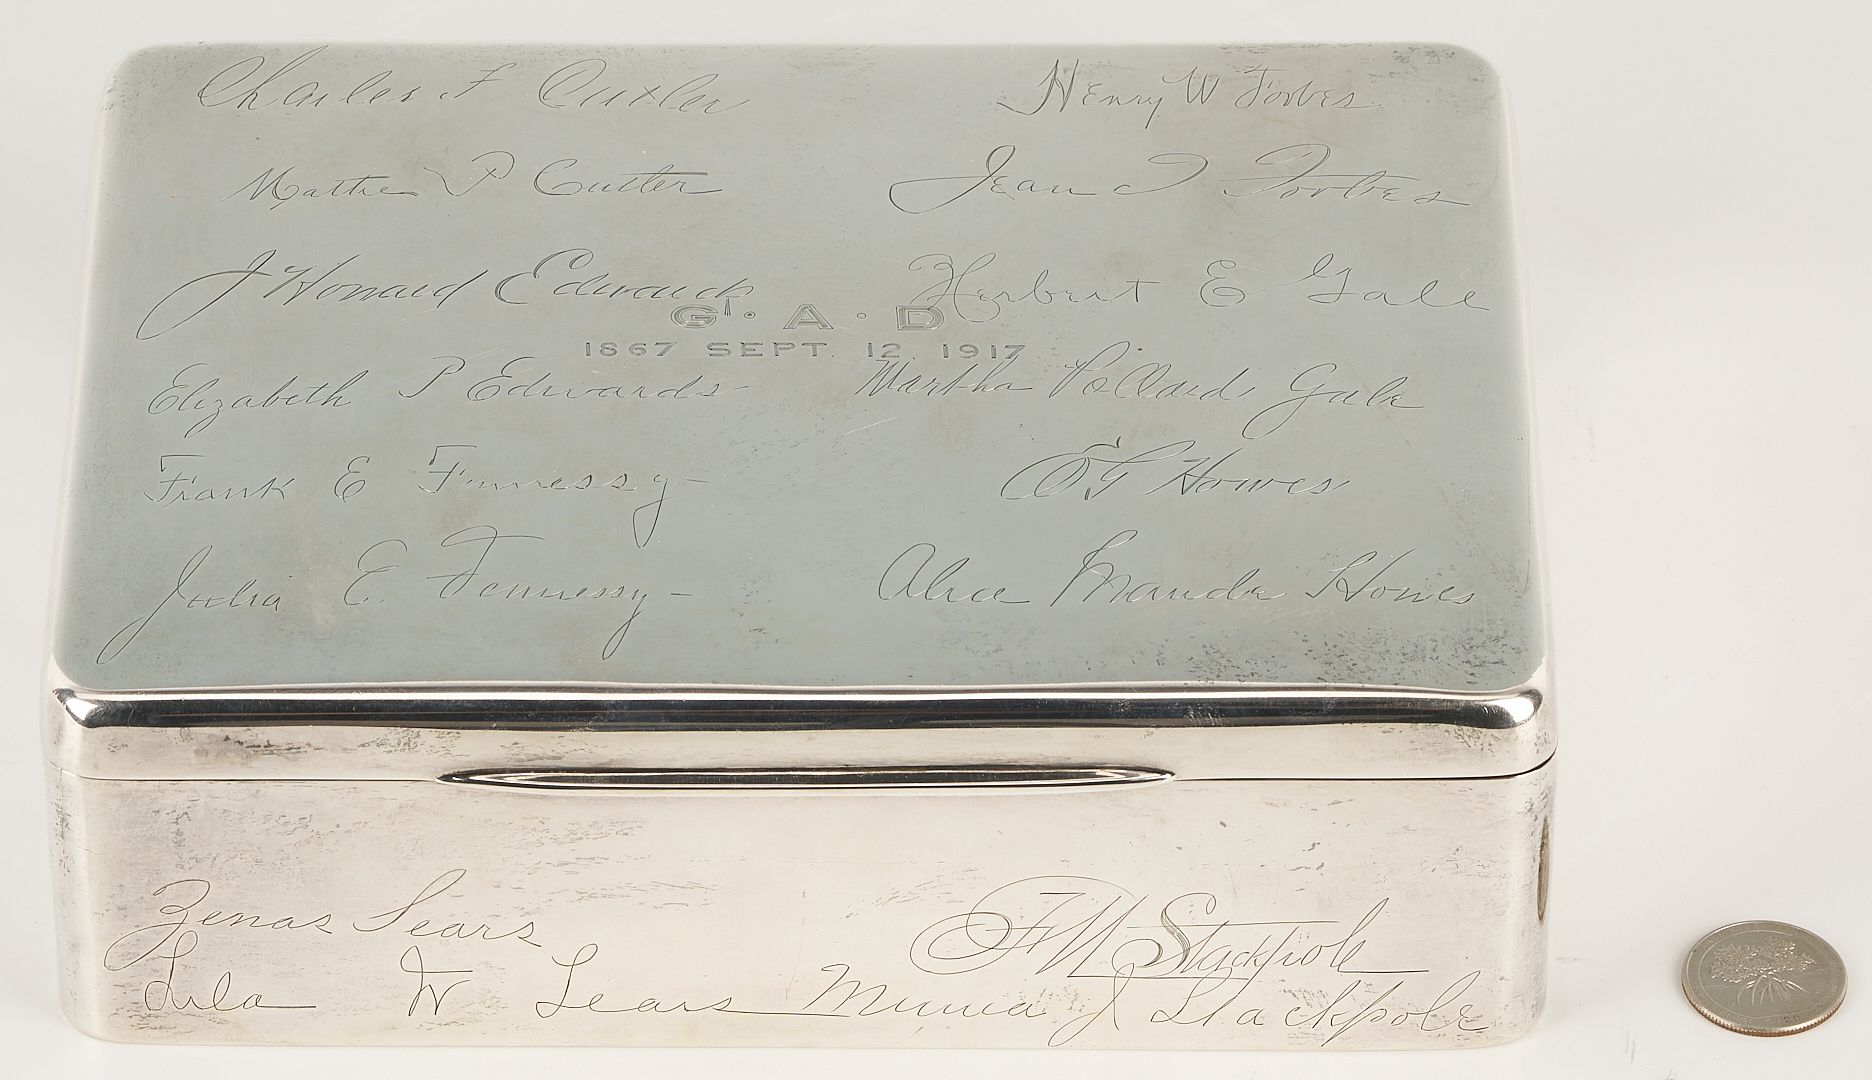 Charles F Cutler
Henry W Forbes
Mattie P Cutler
Jean J Forbes
J Howard Edwards
Herbert E Gale
G·A·D
1867 SEPT. 12. 1917
Elizabeth P Edwards
Martha Pollard Gale
Frank E Fennessy
E G Howes
Julia E. Fennessy
Alice Maude Howes
Zenas Sears
F W Stackpole
Lila W Sears
Minnie J Stackpole